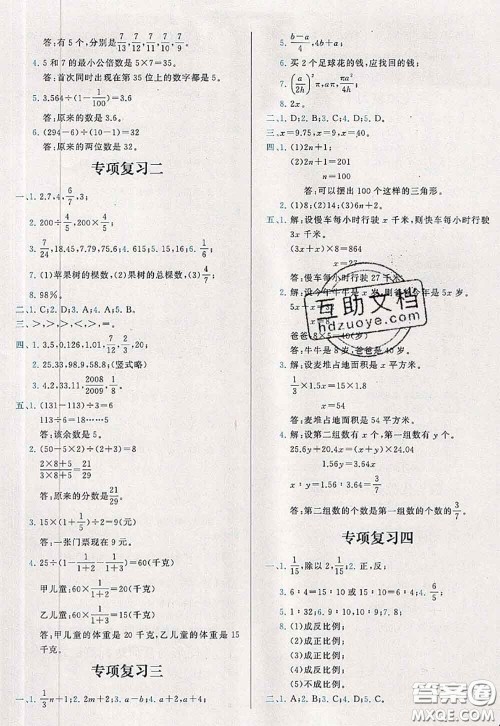 答:有5个,分别是7/13,7/12,7/11,7/10,7/9。
4.5和7的最小公倍数是5×7=35。
答:首次同时出现在第35位上的数字都是5。
5.3.564÷(1-1/100)=3.6
答:原来的数是3.6。
6.(294-6)÷(10-1)=32
答:原来的两位数是32。
专项复习二
一、1.2.7,4,6/7,3;
2.200÷4/5,200×4/5;
3.7/24,18.45,7.79,60;4.615;5.15;6.1/6;
7.(1)苹果树的棵数,(2)果树的总棵数,(3)4/7;
8.98%。
二、1.C;2.D;3.A;4.B;5.D。
三、>,>,>,<,=,>。
四、1.3.5,0.126,1.01,7/12,2/3,20;
2.25,33,98.9,58.8;(竖式略)
3.4.2,33,11,2008/2009,1/8。
五、1.(131-113)÷3=6
113÷6=18……5
答:该余数是5。
2.(50-5×2)÷(2+3)=8
2×8+5/3×8+5=21/29
答:原来的分数是21/29。
3.15×(1+1/5)÷2=9(元)
答:一张门票现在9元。
4.25÷(1/1+2-1/1+3)=60(千克)
甲儿童:60×1/1+2=20(千克)
乙儿童:60×1/1+3=15(千克)
答:甲儿童的体重是20千克,乙儿童的体重是15
千克。
专项复习三
一、1.1/3n+1;2.2m+2;3.a-b;4.a+b,a+4;
5.b-a/4,4b+a;
6.买2个足球花的钱,应找回的钱;
7.(a/2h)²π,πa/h,πa²/4;
8.2x。
二、1.C;2.A;3.D;4.D;5.D。
三、x=9.75,x=9,x=40。
四、1.(1)2n+1;
(2)2n+1=201
n=100
答:可以摆出100个这样的三角形。
2.(1)8;(2)14;(3)10。
五、1.解:设慢车每小时行驶x千米,则快车每小时行驶
3x千米。
(3x+x)×8=864
x=27
答:慢车每小时行驶27千米。
x=8
答:牛牛是8岁,爸爸是40岁。
3.解:设麦堆占地面积是x平方米。
1/3×1.5x=15×1.8
x=54
答:麦堆占地面积是54平方米。
4.解:设第二组数有x个,第一组有y个。
25.6y+20.4x=(x+y)×24.04
1.56y=3.64x
x∶y=1.56∶3.64=3/7
答:第二组数的个数是第一组数的个数的3/7。
专项复习四
一、1.1/15,除以2;2.正,反;
3.6∶4=15∶10;4.15,30;
5.1∶32;6.9∶10;7.10∶9;8.5∶4。
二、(1)成反比例;
(2)成正比例;
(3)成反比例;
(4)成正比例;
(5)成反比例。
三、1.D;2.C;3.A;4.A;5.C。
互助文档
hdzuoye.com
答案圈
MXQE.COM